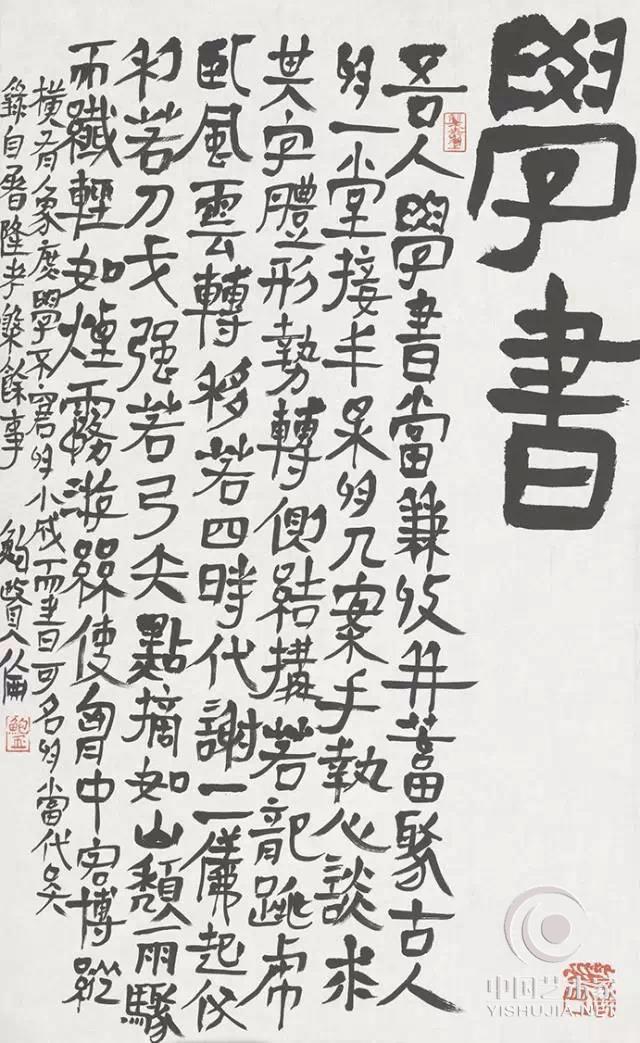 學書
吾人學書當兼收并蓄聚古人
於一堂接丰采於几案手執心談求
其字體形勢轉側結構若龍跳虎
臥風雲轉移若四時代謝二儀起伏
利若刀戈强若弓矢點摘如山頹雨驟
而纖輕如煙霧游絲使胷中宏博縱
橫有象庶學不窘於小成而書可名於當代矣
錄自屠隆考槃餘事 鮑賢倫
中国艺术家
YISHUJIA.NET